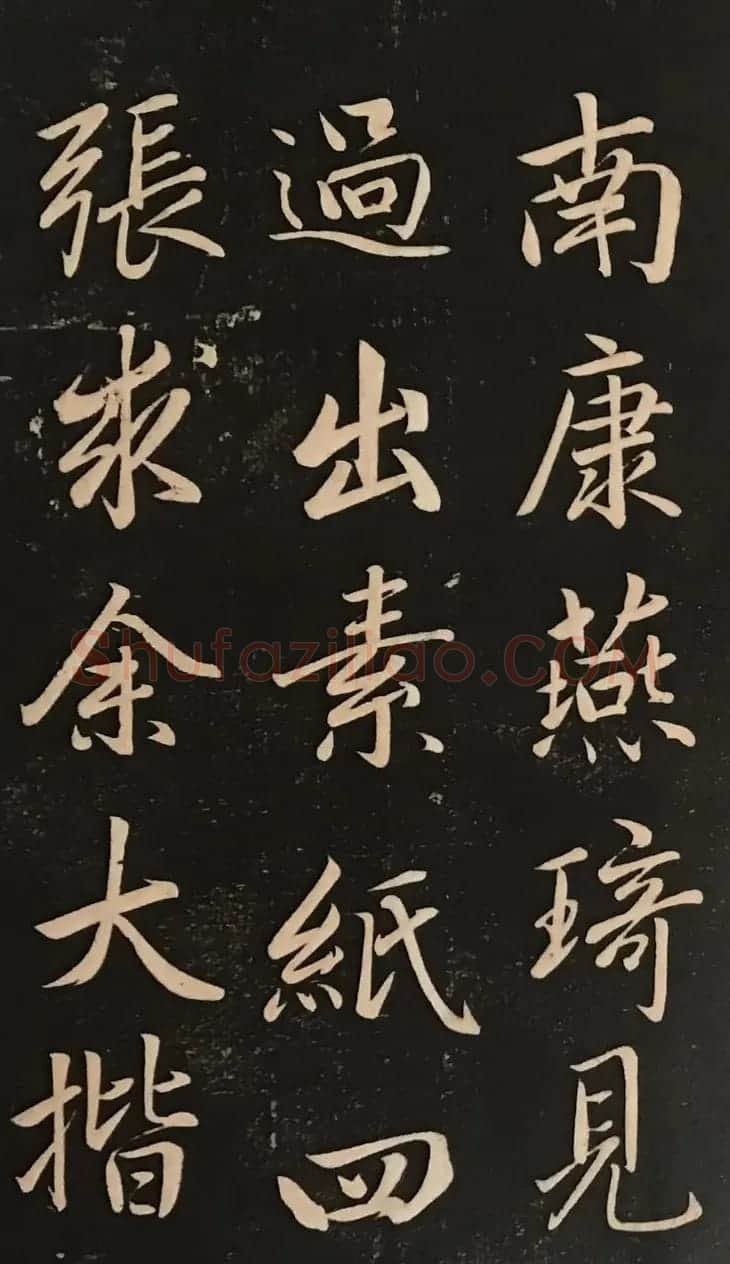 南康燕琦見
過出素紙四
張求余大揩
Shufaziliao.COM